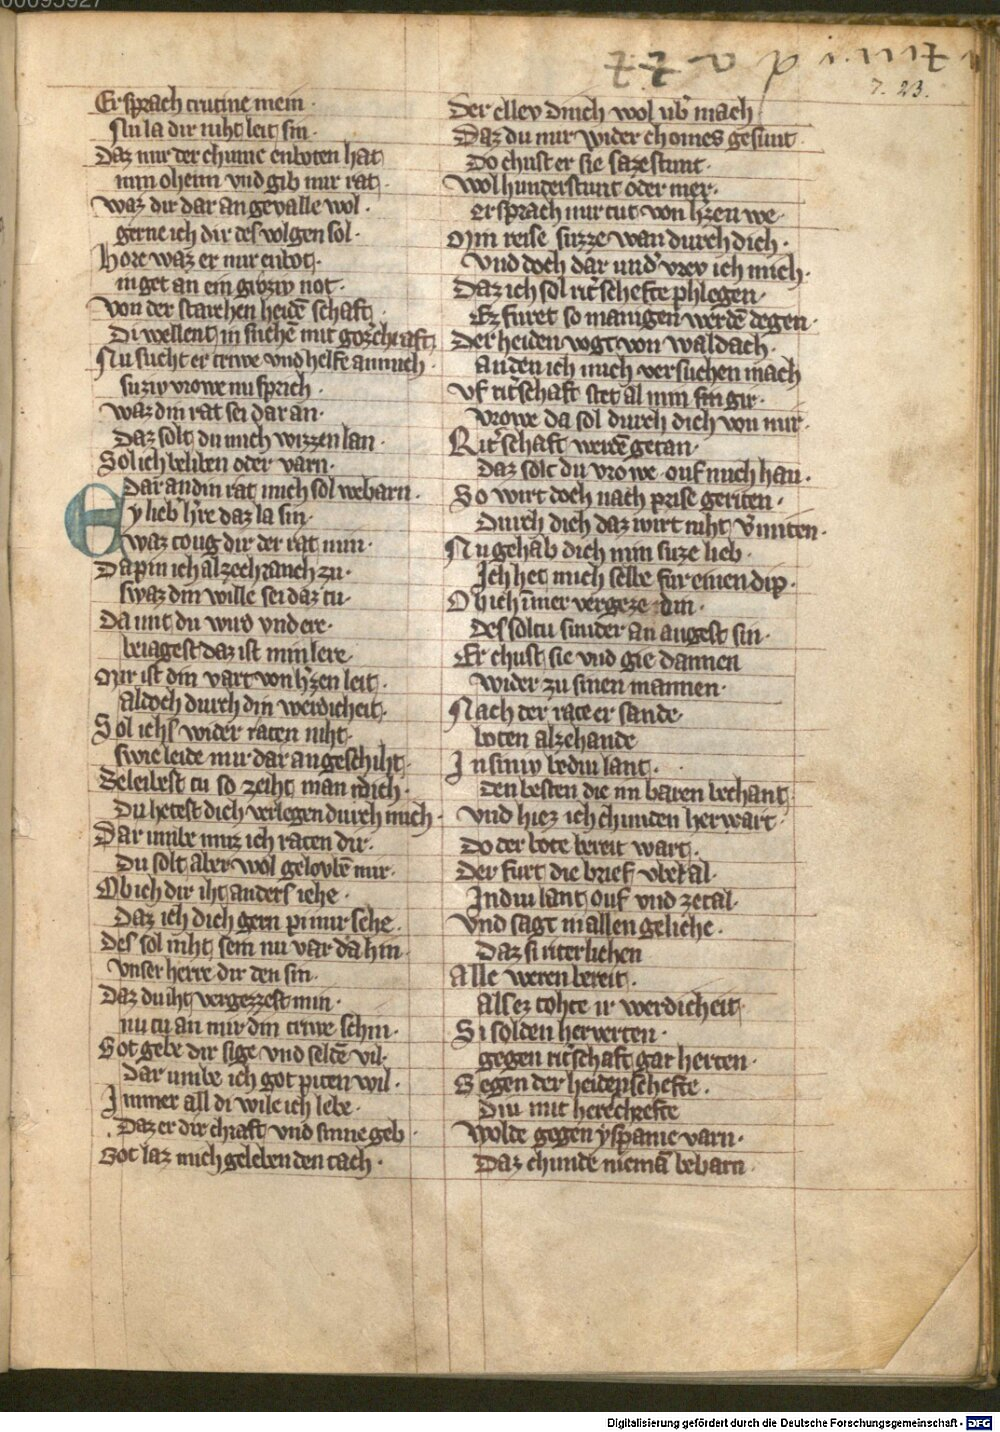 00095927
7. 23.
Er sprach trutine mein ·
Nu la dir niht leit sin ·
Daz mir der chunic enboten hat
min oheim vnd gib mir rat
waz dir dar an gevalle wol ·
gerne ich dir des volgen sol ·
Hore waz er mir enbot ·
in get an ein groziv not ·
Von der starchen heidē schaft ·
Di wellent in suchē mit goz chraft
Nu sucht er triwe vnd helfe an mich ·
suziv vrowe nu sprich ·
waz din rat sei dar an ·
Daz solt du mich wizzen lan ·
Sol ich beliben oder varn ·
Dar an din rat mich sol webarn ·
Ey lieb h're daz la sin ·
waz toug dir der rat min ·
Da pin ich alze chranch zu ·
swaz din wille sei daz tu ·
Da mit du wird vnd ere ·
beiagest daz ist min lere ·
Mir ist din vart von h'zen leit ·
al doch durch din werdicheit ·
Sol ichs wider raten niht ·
swie leide mir dar an geschiht ·
Beleibest tu so zeiht man dich ·
Du hetest dich verlegen durch mich ·
Dar umbe muz ich raten dir ·
Du solt aber wol geloubē mir ·
Ob ich dir iht anders iehe ·
Daz ich dich gern pi mir sehe ·
Des sol niht sein nu var da hin ·
Vnser herre dir den sin ·
Daz du iht vergezzest min ·
nu tu an mir din triwe schin ·
Got gebe dir sige vnd seldē vil ·
Dar umbe ich got piten wil ·
Immer all di wile ich lebe ·
Daz er dir chraft vnd sinne geb ·
Got laz mich geleben den tach ·
Der ellev dinch wol vb' mach
Daz du mir wider chomes gesunt ·
Do chust er sie sa ze stunt ·
Wol hunderstunt oder mer ·
er sprach mir tut von h'zen we ·
Min reise suzze wan durch dich ·
Vnd doch dar und' vrev ich mich ·
Daz ich sol rit'schefte phlegen ·
Ez furet so manigen werdē degen ·
Der heiden vogt von waldach ·
An den ich mich versuchen mach
Vf rit'schaft stet al min sin gir ·
Vrowe da sol durch dich von mir ·
Rit'schaft werdē getan ·
Daz solt du vrowe ouf mich han ·
So wirt doch nach prise geriten ·
Durch dich daz wirt niht v'miten ·
Nu gehab dich min suze lieb ·
Ich het mich selbe fur einen dip ·
Ob ich im̄er vergeze din ·
Des soltu sunder an angest sin ·
Er chust sie vnd gie dannen
wider zu sinen mannen ·
Nach der rate er sande
boten alzehande
In siniv bediu lant ·
Den besten die im waren bechant
Vnd hiez ich chunden her vart ·
Do der bote bereit wart ·
Der furt die brief vberal ·
In diu lant ouf vnd zetal ·
Vnd sagt in allen geliche ·
Daz si riterlichen
Alle weren bereit ·
Als ez tohte ir werdicheit ·
Si solden her verten ·
gegen rit'schaft gar herten ·
Gegen der heidenschefte ·
Diu mit here chrefte
Wolde gegen yspanie varn ·
Daz chunde niemā bebarn ·
Digitalisierung gefördert durch die Deutsche Forschungsgemeinschaft - DFG